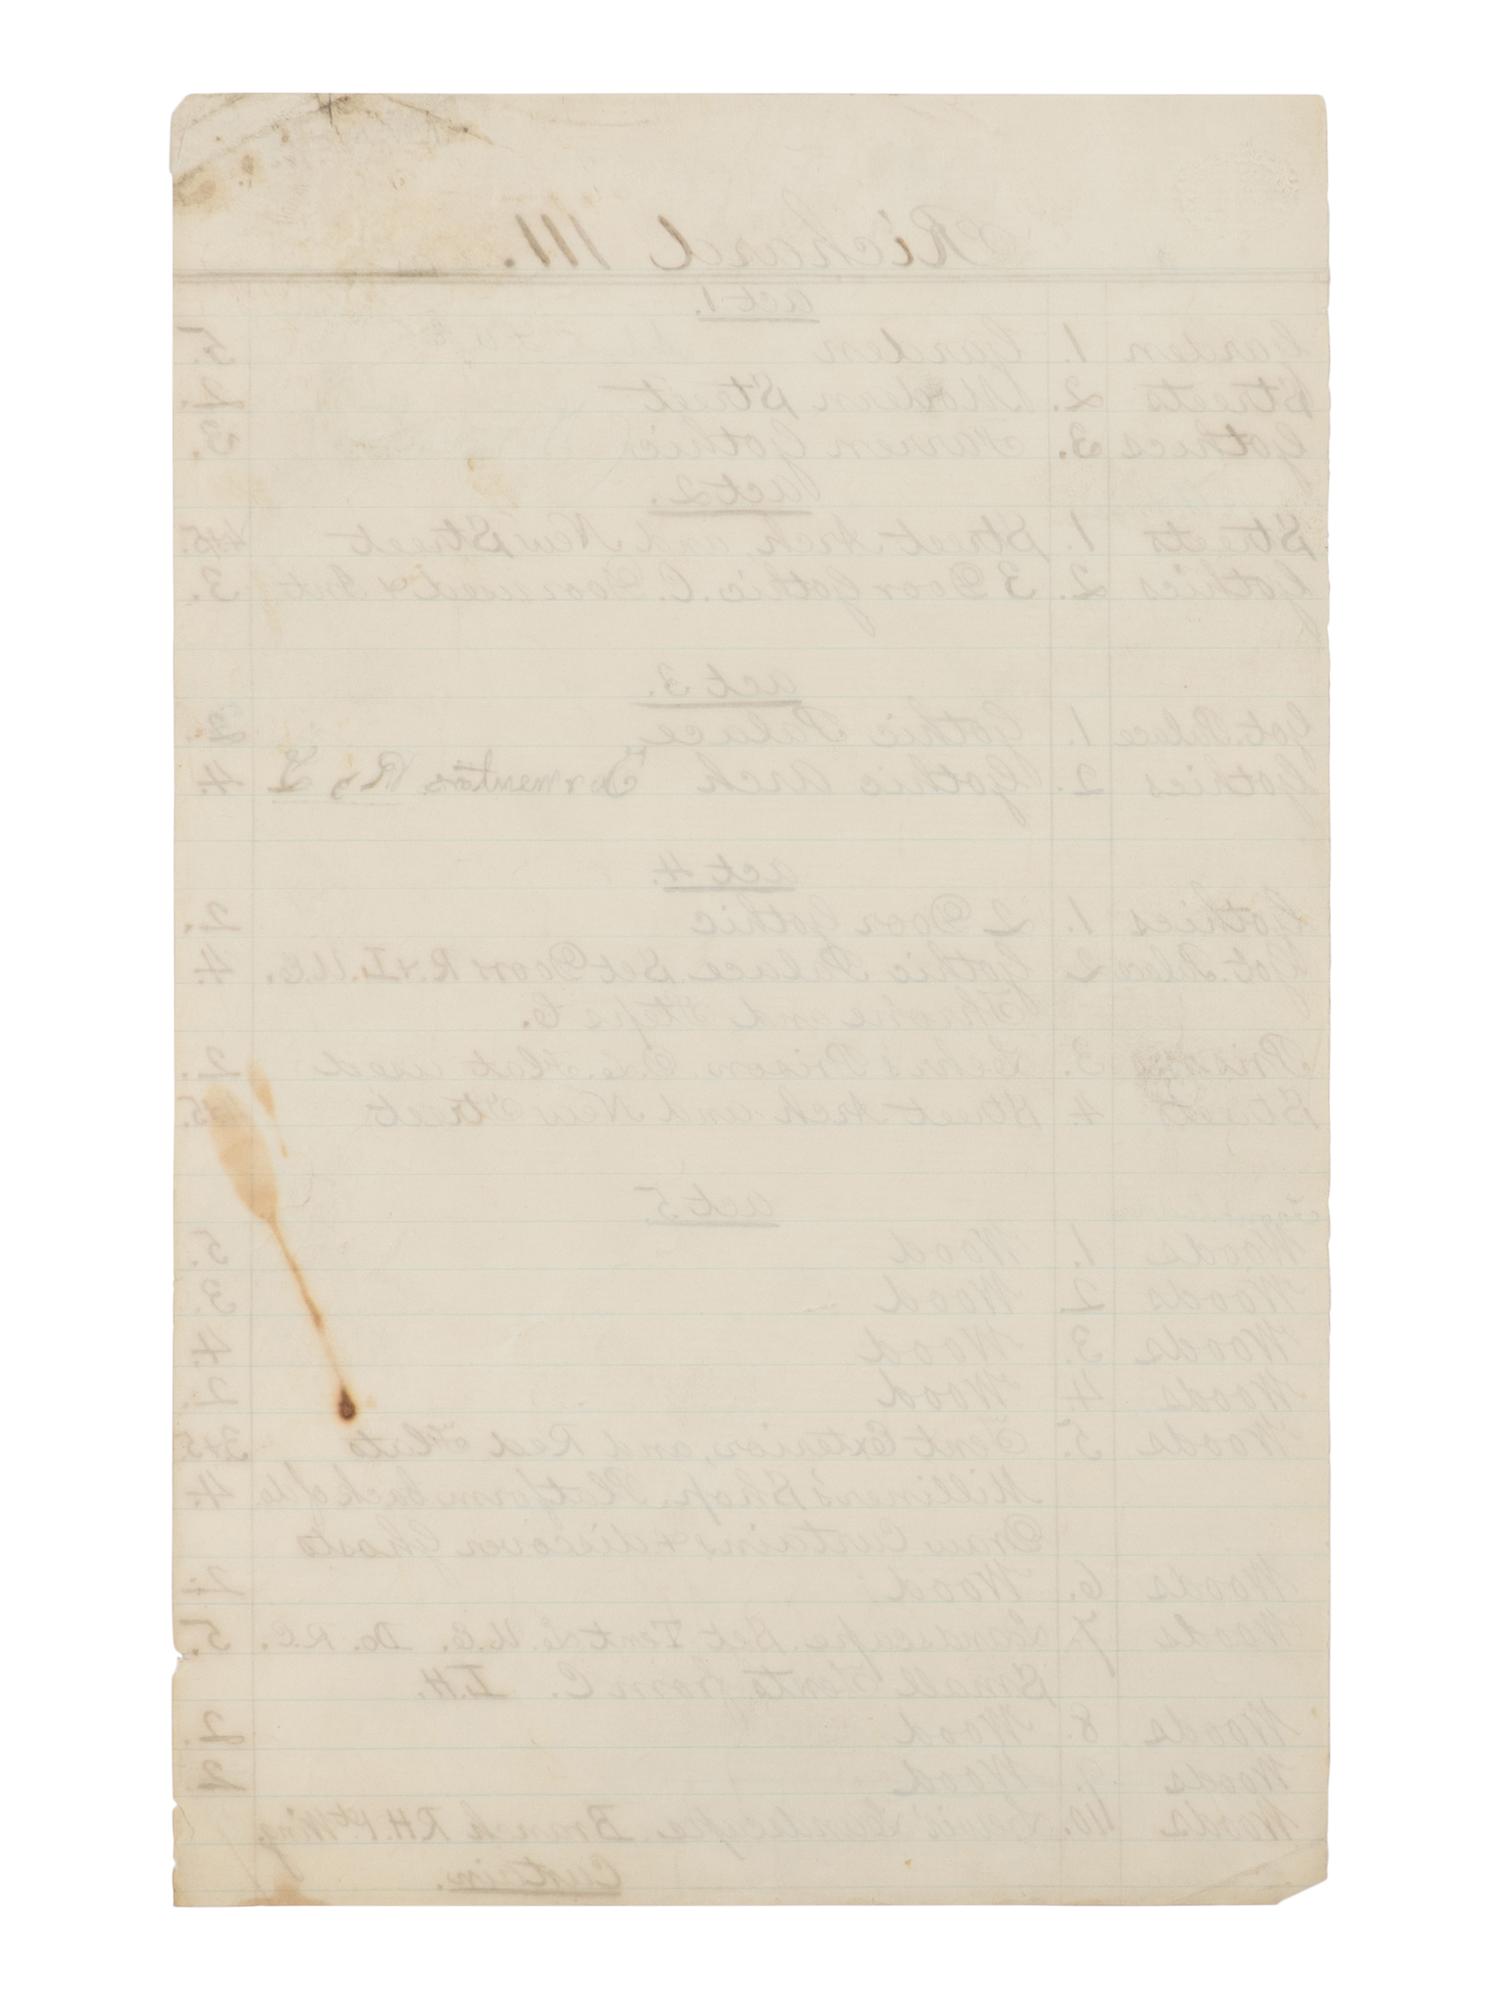 Richard III.
act 1.
Garden 1. Garden 5.
Streets 2. Modern Street 2.
Gothics 3. Gothic 3.
act 2.
Streets 1. Street Arch and New Street 4&5.
Gothics 2. 3 Door Gothic. C. Door used & 3.
act 3.
Got. Palace 1. Gothic Palace 2.
Gothics 2. Gothic Arch Tormentors R & L 4.
act 4.
Gothics 1. 2 Door Gothic 2.
Got. Palace 2 Gothic Palace Set Door R. & L. U.E. 4.
Throne and Steps C.
Prison 3. Prison. One Flat used 2.
Street 4. Street Arch and New Street 5.
act 5.
Woods 1. Wood 5.
Woods 2 Wood 3.
Woods 3. Wood 4.
Woods 4 Wood 2.
Woods 5. Tent Exterior, and Red Flats 3&5.
Milliner's Shop. Platform back of 4.
Draw Curtains & discover Ghosts
Woods 6. Wood. 2.
Woods 7. Landscape Set Tent L. U.E. Do. R.C. 5.
Small Tents from C. L.H.
Woods 8. Wood 2.
Woods 9. Wood 2
Woods 10. Landscape Branch R.H. 1st Wing.
Curtain.